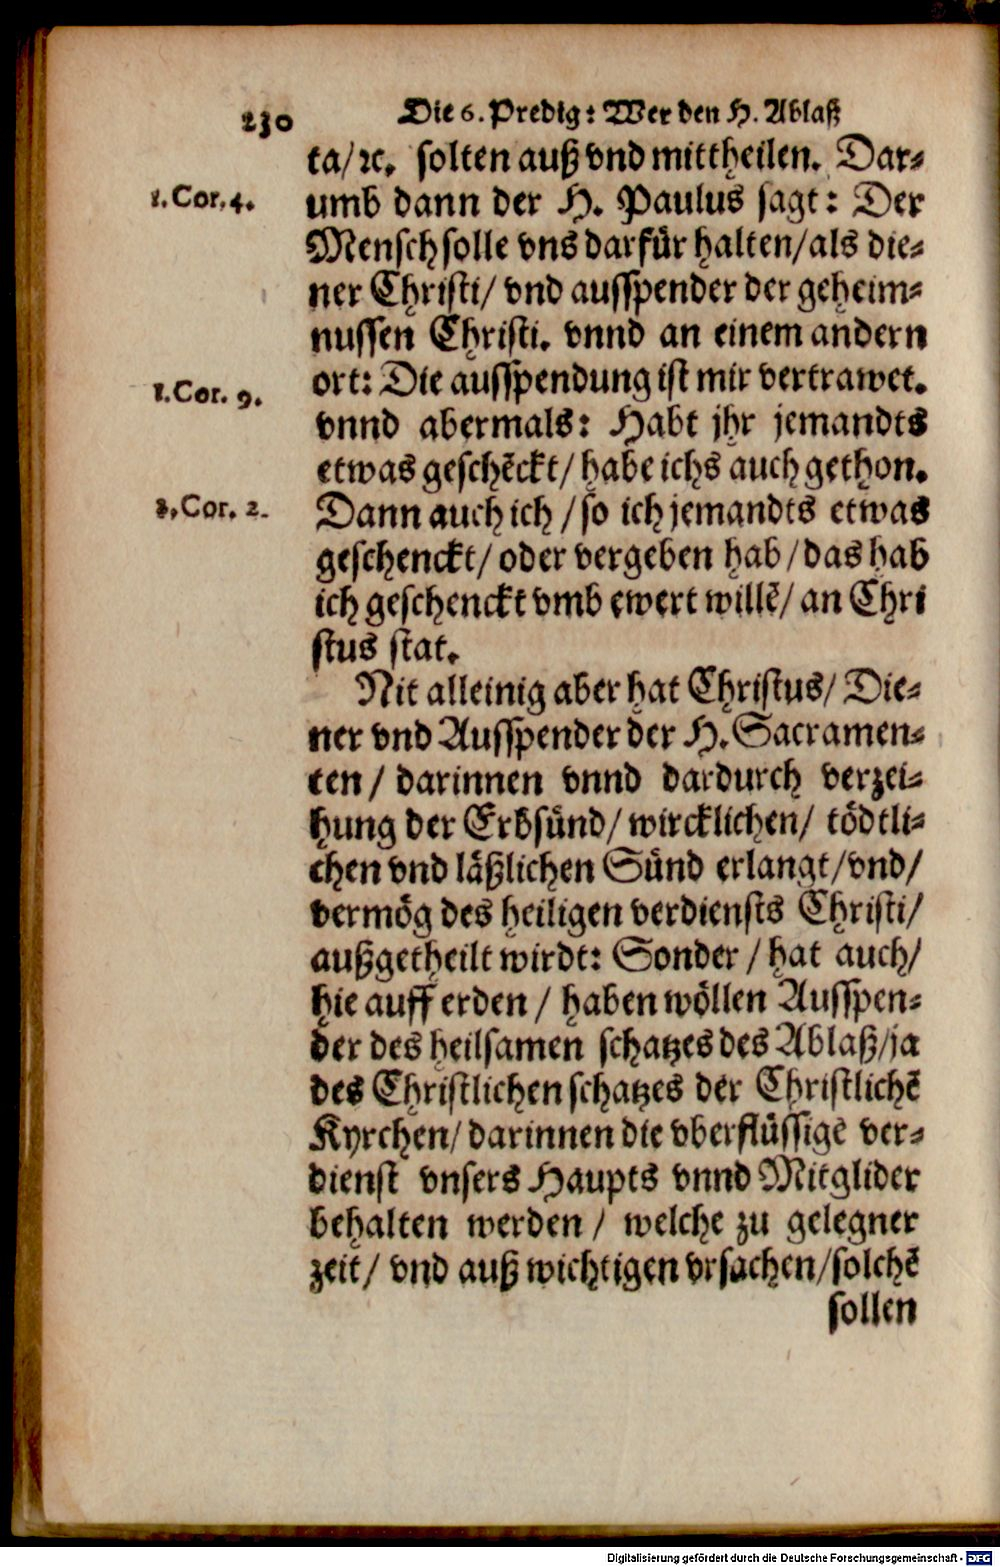 230 Die 6. Predig: Wer den H. Ablaß
ta/ꝛc. solten auß vnd mittheilen. Dar⸗
1.Cor.4. umb dann der H. Paulus sagt: Der
Mensch solle vns darfür halten/als die⸗
ner Christi/ vnd ausspender der geheim⸗
nussen Christi. vnnd an einem andern
1.Cor. 9. ort: Die ausspendung ist mir vertrawet.
vnnd abermals: Habt jhr jemandts
etwas geschẽckt/ habe ichs auch gethon.
2.Cor. 2. Dann auch ich / so ich jemandts etwas
geschenckt/ oder vergeben hab / das hab
ich geschenckt vmb ewert willẽ/ an Chri
stus stat.
Nit alleinig aber hat Christus/ Die⸗
ner vnd Ausspender der H. Sacramen⸗
ten / darinnen vnnd dardurch verzei⸗
hung der Erbsünd/ wircklichen/ tödtli⸗
chen vnd läßlichen Sünd erlangt/vnd/
vermög des heiligen verdiensts Christi/
außgetheilt wirdt: Sonder / hat auch/
hie auff erden / haben wöllen Ausspen⸗
der des heilsamen schatzes des Ablaß/ja
des Christlichen schatzes der Christlichẽ
Kyrchen/ darinnen die vberflüssige ver⸗
dienst vnsers Haupts vnnd Mitglider
behalten werden / welche zu gelegner
zeit/ vnd auß wichtigen vrsachen/solchẽ
sollen
Digitalisierung gefördert durch die Deutsche Forschungsgemeinschaft - DFG